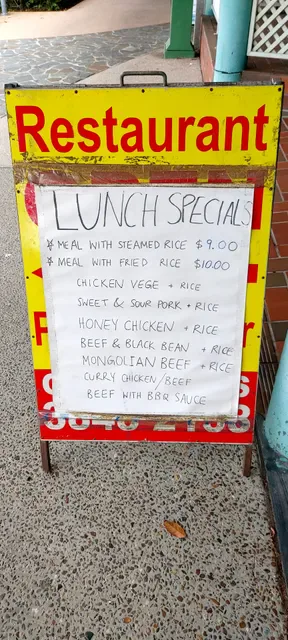 Restaurant
LUNCH SPECIALS
☆ MEAL WITH STEAMED RICE $9.00
☆ MEAL WITH FRIED RICE $10.00
CHICKEN VEGE + RICE
SWEET & SOUR PORK + RICE
HONEY CHICKEN + RICE
BEEF & BLACK BEAN + RICE
MONGOLIAN BEEF + RICE
CURRY CHICKEN/BEEF
BEEF WITH BBQ SAUCE